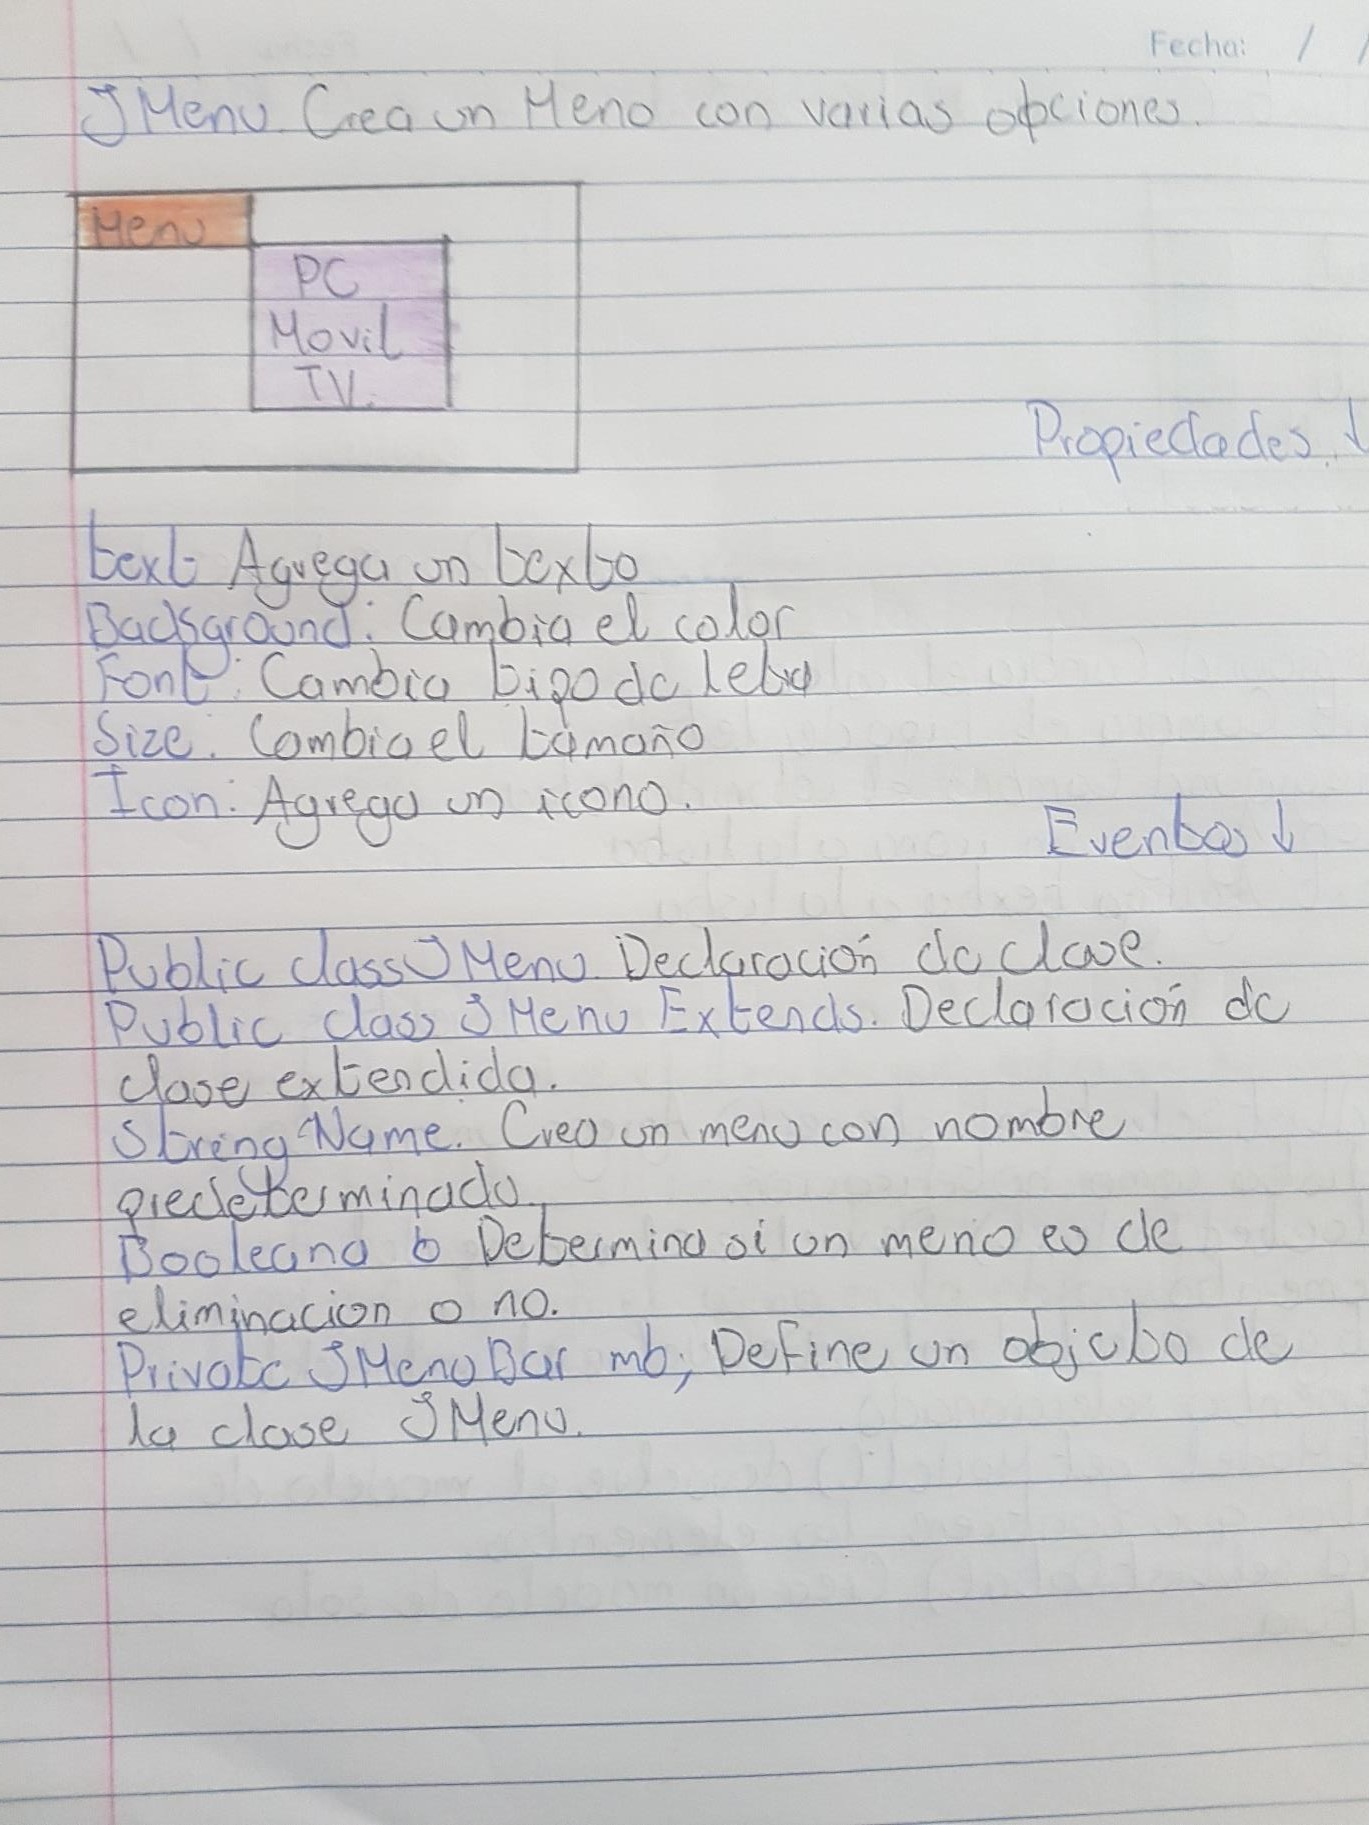 Fecha: / /
JMenu. Crea un Menu con varias opciones.
Menu
PC
Movil
TV.
Propiedades. ↓
text: Agrega un texto
Background: Cambia el color
Font: Cambia tipo de letra
Size: Cambia el tamaño
Icon: Agrega un icono.
Eventos ↓
Public class JMenu. Declaración de clase.
Public class JMenu Extends. Declaración de
clase extendida.
String Name. Crea un menu con nombre
predeterminado.
Booleana b Determina si un menu es de
eliminacion o no.
Private JMenuBar mb; Define un objeto de
la clase JMenu.